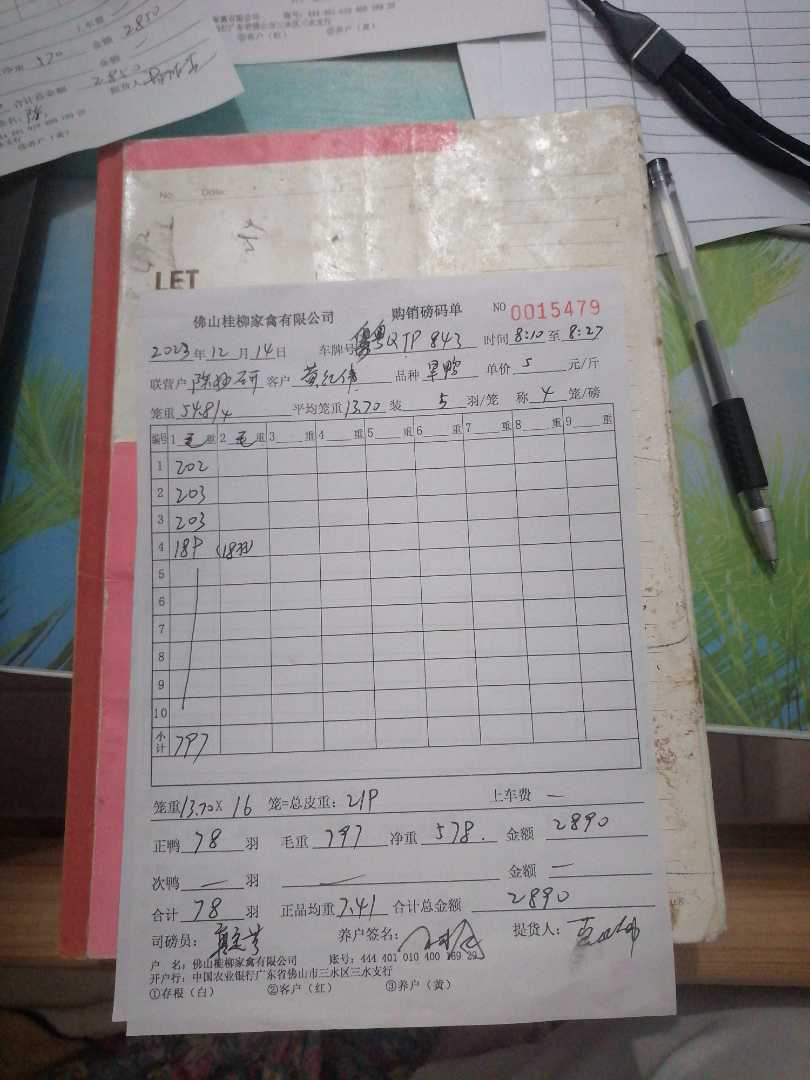 金额 2850
金额
合计总金额 2850
③养户（黄）
②客户（红） ③养户（黄）
No. Date:
LET
佛山桂柳家禽有限公司 购销磅码单 NO 0015479
2023年12月14日 车牌号 粤QTP 843 时间 8:10 至 8:27
联营户 客户 黄纪伟 品种 旱鸭 单价 5 元/斤
笼重 54.8/4 平均笼重 13.70 装 5 羽/笼 称 4 笼/磅
编号 1 毛 重 2 毛 重 3 重 4 重 5 重 6 重 7 重 8 重 9 重
1 202
2 203
3 203
4 189 (18羽)
5
6
7
8
9
10
小计 797
笼重 13.70 X 16 笼=总皮重: 219 上车费 一
正鸭 78 羽 毛重 797 净重 578. 金额 2890
次鸭 一 羽 一 金额 一
合计 78 羽 正品均重 7.41 合计总金额 2890
司磅员: 养户签名: 提货人:
户 名: 佛山桂柳家禽有限公司 账号: 444 401 010 400 169 29
开户行: 中国农业银行广东省佛山市三水区三水支行
①存根（白） ②客户（红） ③养户（黄）